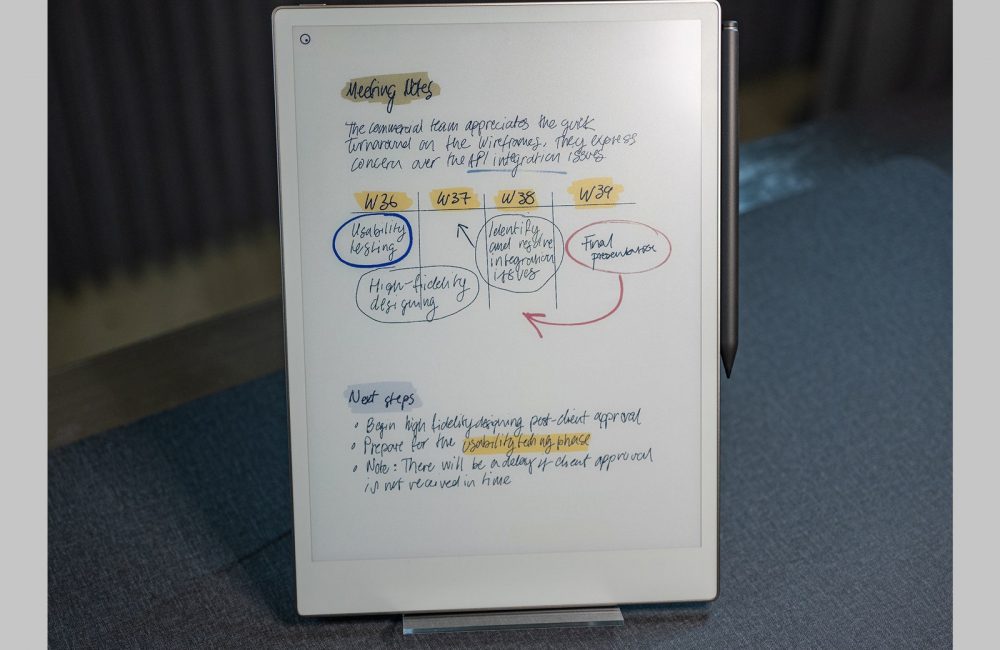 Meeting Notes
The commercial team appreciates the quick
turnaround on the wireframes. They express
concern over the API integration issues
W36 W37 W38 W39
Usability
testing
Identify
and resolve
integration
issues
Final
presentation
High-fidelity
designing
Next steps
• Begin high fidelity designing post-client approval
• Prepare for the usability testing phase
• Note: There will be a delay if client approval
is not received in time